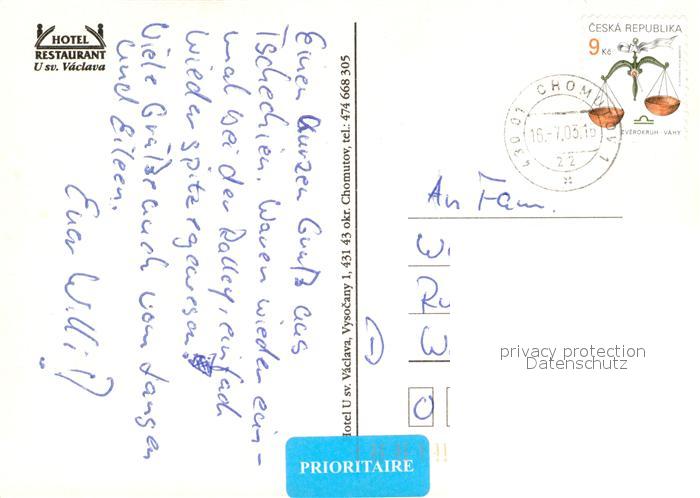 HOTEL
RESTAURANT
U sv. Václava
Einen kurzen Gruß aus
Tschechien. Waren wieder ein-
mal bei der Ralley, einfach
wieder spitze gewesen.
Viele Grüße auch vom Jangen
und Eileen.
Euer Willi
Hotel U sv. Václava, Vysočany 1, 431 43 okr. Chomutov, tel.: 474 668 305
ČESKÁ REPUBLIKA
9 Kč
ZVĚROKRUH - VÁHY
430 01 CHOMUTOV 1
16.-7.05.16
22
An Fam.
W
Ru
W
O
privacy protection
Datenschutz
PRIORITAIRE